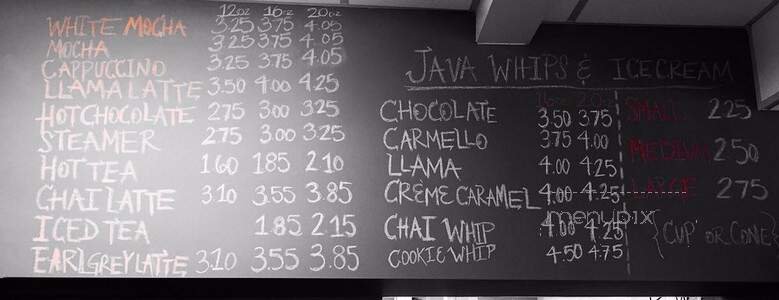 12oz 16oz 20oz
WHITE MOCHA 3.25 3.75 4.05
MOCHA 3.25 3.75 4.05
CAPPUCCINO 3.25 3.75 4.05
LLAMA LATTE 3.50 4.00 4.25
HOT CHOCOLATE 275 300 325
STEAMER 275 300 3.25
HOT TEA 160 185 210
CHAI LATTE 310 3.55 3.85
ICED TEA 1.85 2.15
EARLGREY LATTE 3.10 3.55 3.85
JAVA WHIPS & ICE CREAM
16oz 20oz
CHOCOLATE 3.50 3.75
CARMELLO 3.75 4.00
LLAMA 4.00 4.25
CREME CARAMEL 4.00 4.25
CHAI WHIP 4.00 4.25
COOKIE WHIP 4.50 4.75
SMALL 225
MEDIUM 250
LARGE 275
{CUP OR CONE}
menupix